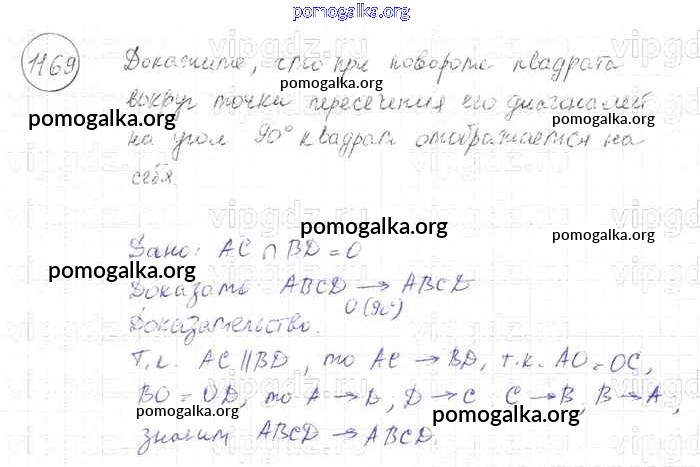 pomogalka.org
1169 Докажите, что при повороте квадрата
вокруг точки пересечения его диагоналей
на угол 90° квадрат отображается на
себя.
Дано: AC ∩ BD = O
Доказать ABCD → ABCD
O (90°)
Доказательство.
Т.к. AC || BD, то AC → BD, т.к. AO = OC,
BO = OD, то A → D, D → C, C → B, B → A,
значит ABCD → ABCD.
pomogalka.org
pomogalka.org
pomogalka.org
pomogalka.org
pomogalka.org
pomogalka.org
pomogalka.org
pomogalka.org
pomogalka.org